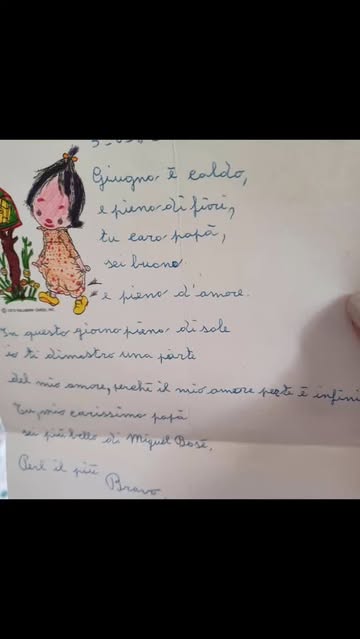 Giugno è caldo,
e pieno di fiori,
tu caro papà,
sei buono
e pieno d'amore.
In questo giorno pieno di sole
io ti dimostro una parte
del mio amore, perchè il mio amore per te è infini
Tu, mio carissimo papà
sei più bello di Miguel Bosè,
Perl il più
Bravo